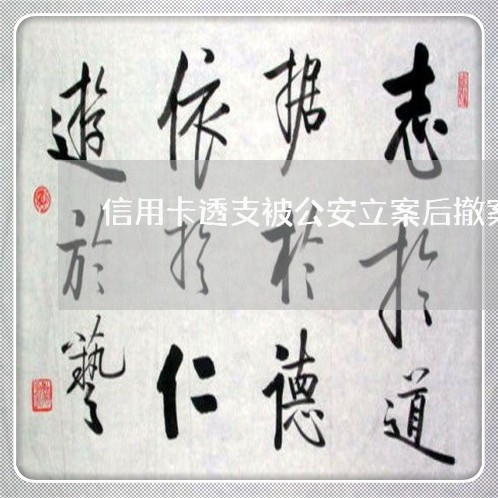 志於道
据於德
依於仁
遊於藝
信用卡透支被公安立案后撤案